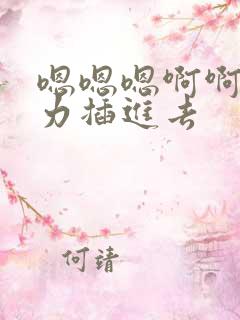 嗯嗯嗯啊啊
力插進去
何靖